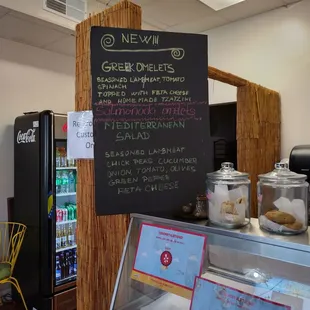 NEW!!!
GREEK OMELETS
SEASONED LAMB MEAT, TOMATO
SPINACH
TOPPED WITH FETA CHEESE
AND HOME MADE TZATZIKI
MEDITERRANEAN
SALAD
SEASONED LAMB MEAT
CHICK PEAS CUCUMBER
ONION, TOMATO, OLIVES
GREEN PEPPER
FETA CHEESE
Coca-Cola